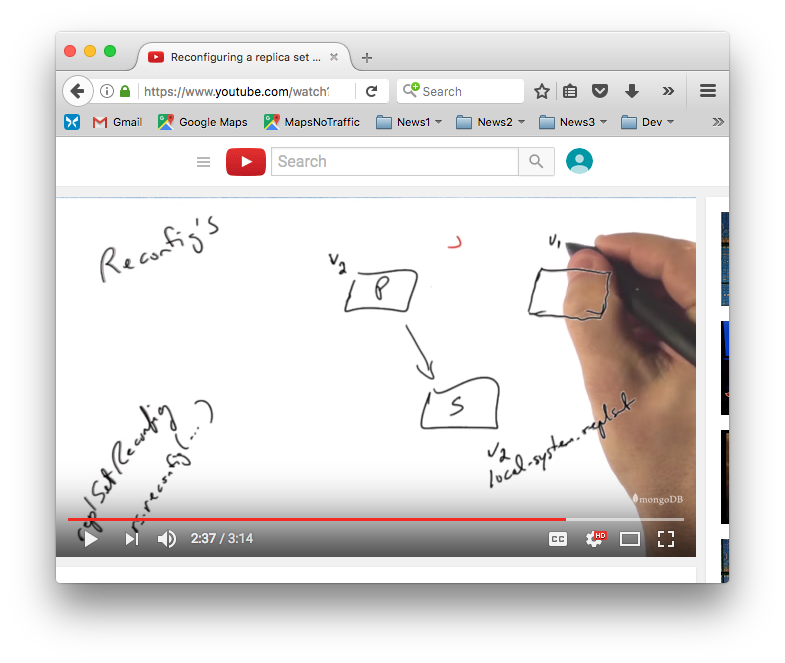 Reconfiguring a replica set ...
https://www.youtube.com/watch?
Search
Gmail
Google Maps
MapsNoTraffic
News1
News2
News3
Dev
Search
Reconfig's
V2
P
V1
S
V2
local.system.replset
replSetReconfig
rs.reconfig(...)
mongoDB
2:37 / 3:14
CC
HD